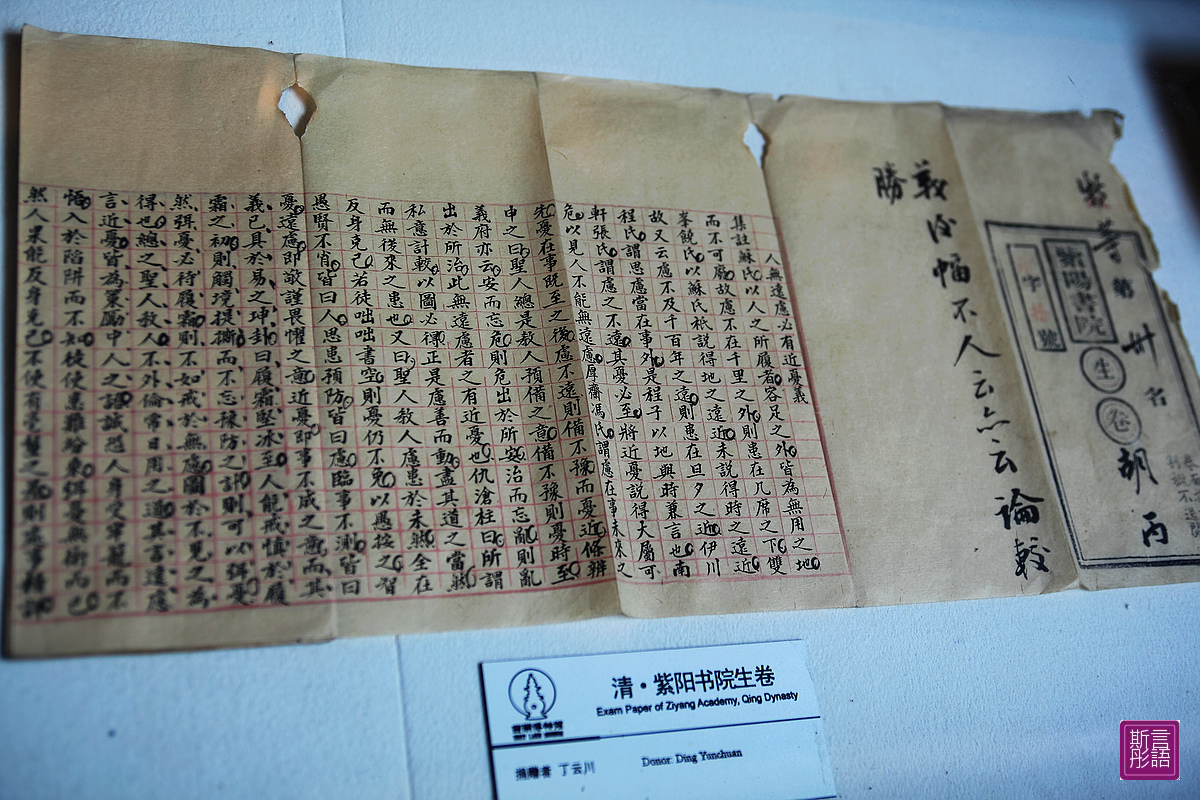 人無遠慮必有近憂義
集註蘇氏曰人之所履者容足之外皆為無用之地
而不可廢故慮不在千里之外則患在几席之下雙
峯饒氏以蘇氏祇說得地之遠近未說得時之遠近
故又云慮不及千百年之遠則患在旦夕之近伊川
程氏謂思慮當在事外是程子以地與時兼言也南
軒張氏謂慮之不遠其憂必至將近憂說得大屬可
危以見人不能無遠慮厚齋馮氏謂慮在事未來之
先憂在事既至之後慮不遠則備不豫而憂近條辨
中之曰聖人總是教人預備之意備不豫則憂時至
義府亦云安而忘危則危出於所安治而忘亂則亂
出於所治此無遠慮者之有近憂也仇滄柱曰所謂
私意計較以圖必得正是慮善而動盡其道之當然
而無後來之患也又曰聖人教人慮患於未然全在
反身克己若徒咄咄書空則憂仍不免以愚按之智
愚賢不肖皆曰人思患預防皆曰慮臨事不測皆曰
憂遠慮即敬謹畏懼之意近憂即事不咸之意而其
義已具於易之坤卦曰履霜堅冰至人能戒慎於履
霜之初則觸境提撕而不忘豫防之計則可以弭憂
然弭憂必待履霜則不如戒於無慮圖於不見之為
得也總之聖人教人不外倫常日用之道其言遠慮
言近憂皆為策勵中人之
悟入於陷阱而不知徒使患難紛乘弭憂無術而已
然人果能反身克己不使有毫釐之
義後幅不人云亦云論較
勝
紫陽書院
生
卷
字
號
第卅名
胡丙
清·紫阳书院生卷
Exam Paper of Ziyang Academy, Qing Dynasty
捐赠者 丁云川
Donor: Ding Yunchuan
斯彤言語